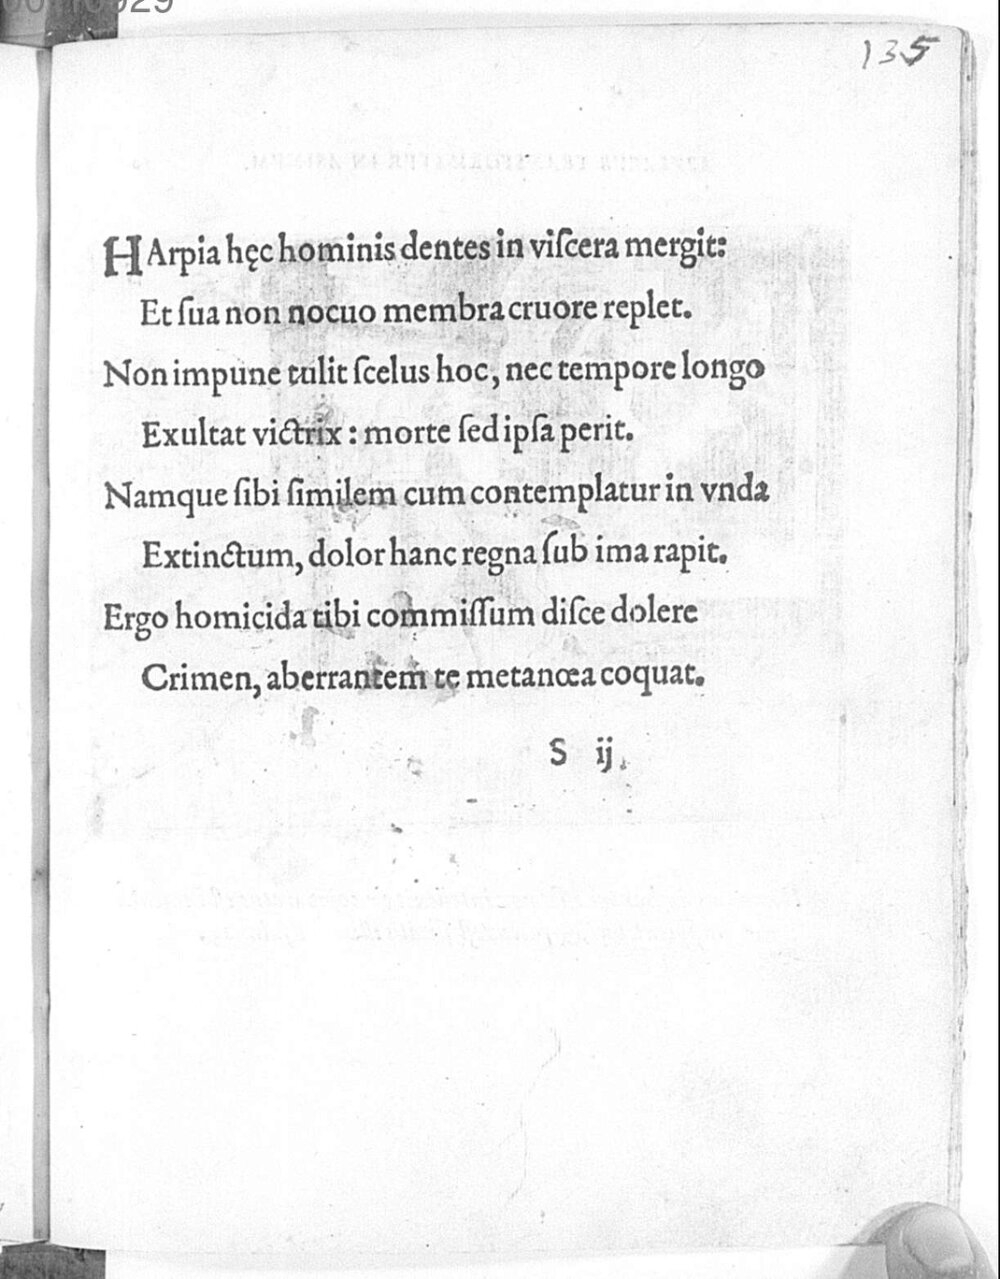 135
HArpia hęc hominis dentes in viſcera mergit:
Et ſua non nocuo membra cruore replet.
Non impune tulit ſcelus hoc, nec tempore longo
Exultat victrix: morte ſed ipſa perit.
Namque ſibi ſimilem cum contemplatur in vnda
Extinctum, dolor hanc regna ſub ima rapit.
Ergo homicida tibi commiſſum diſce dolere
Crimen, aberrantem te metanœa coquat.
S ij.